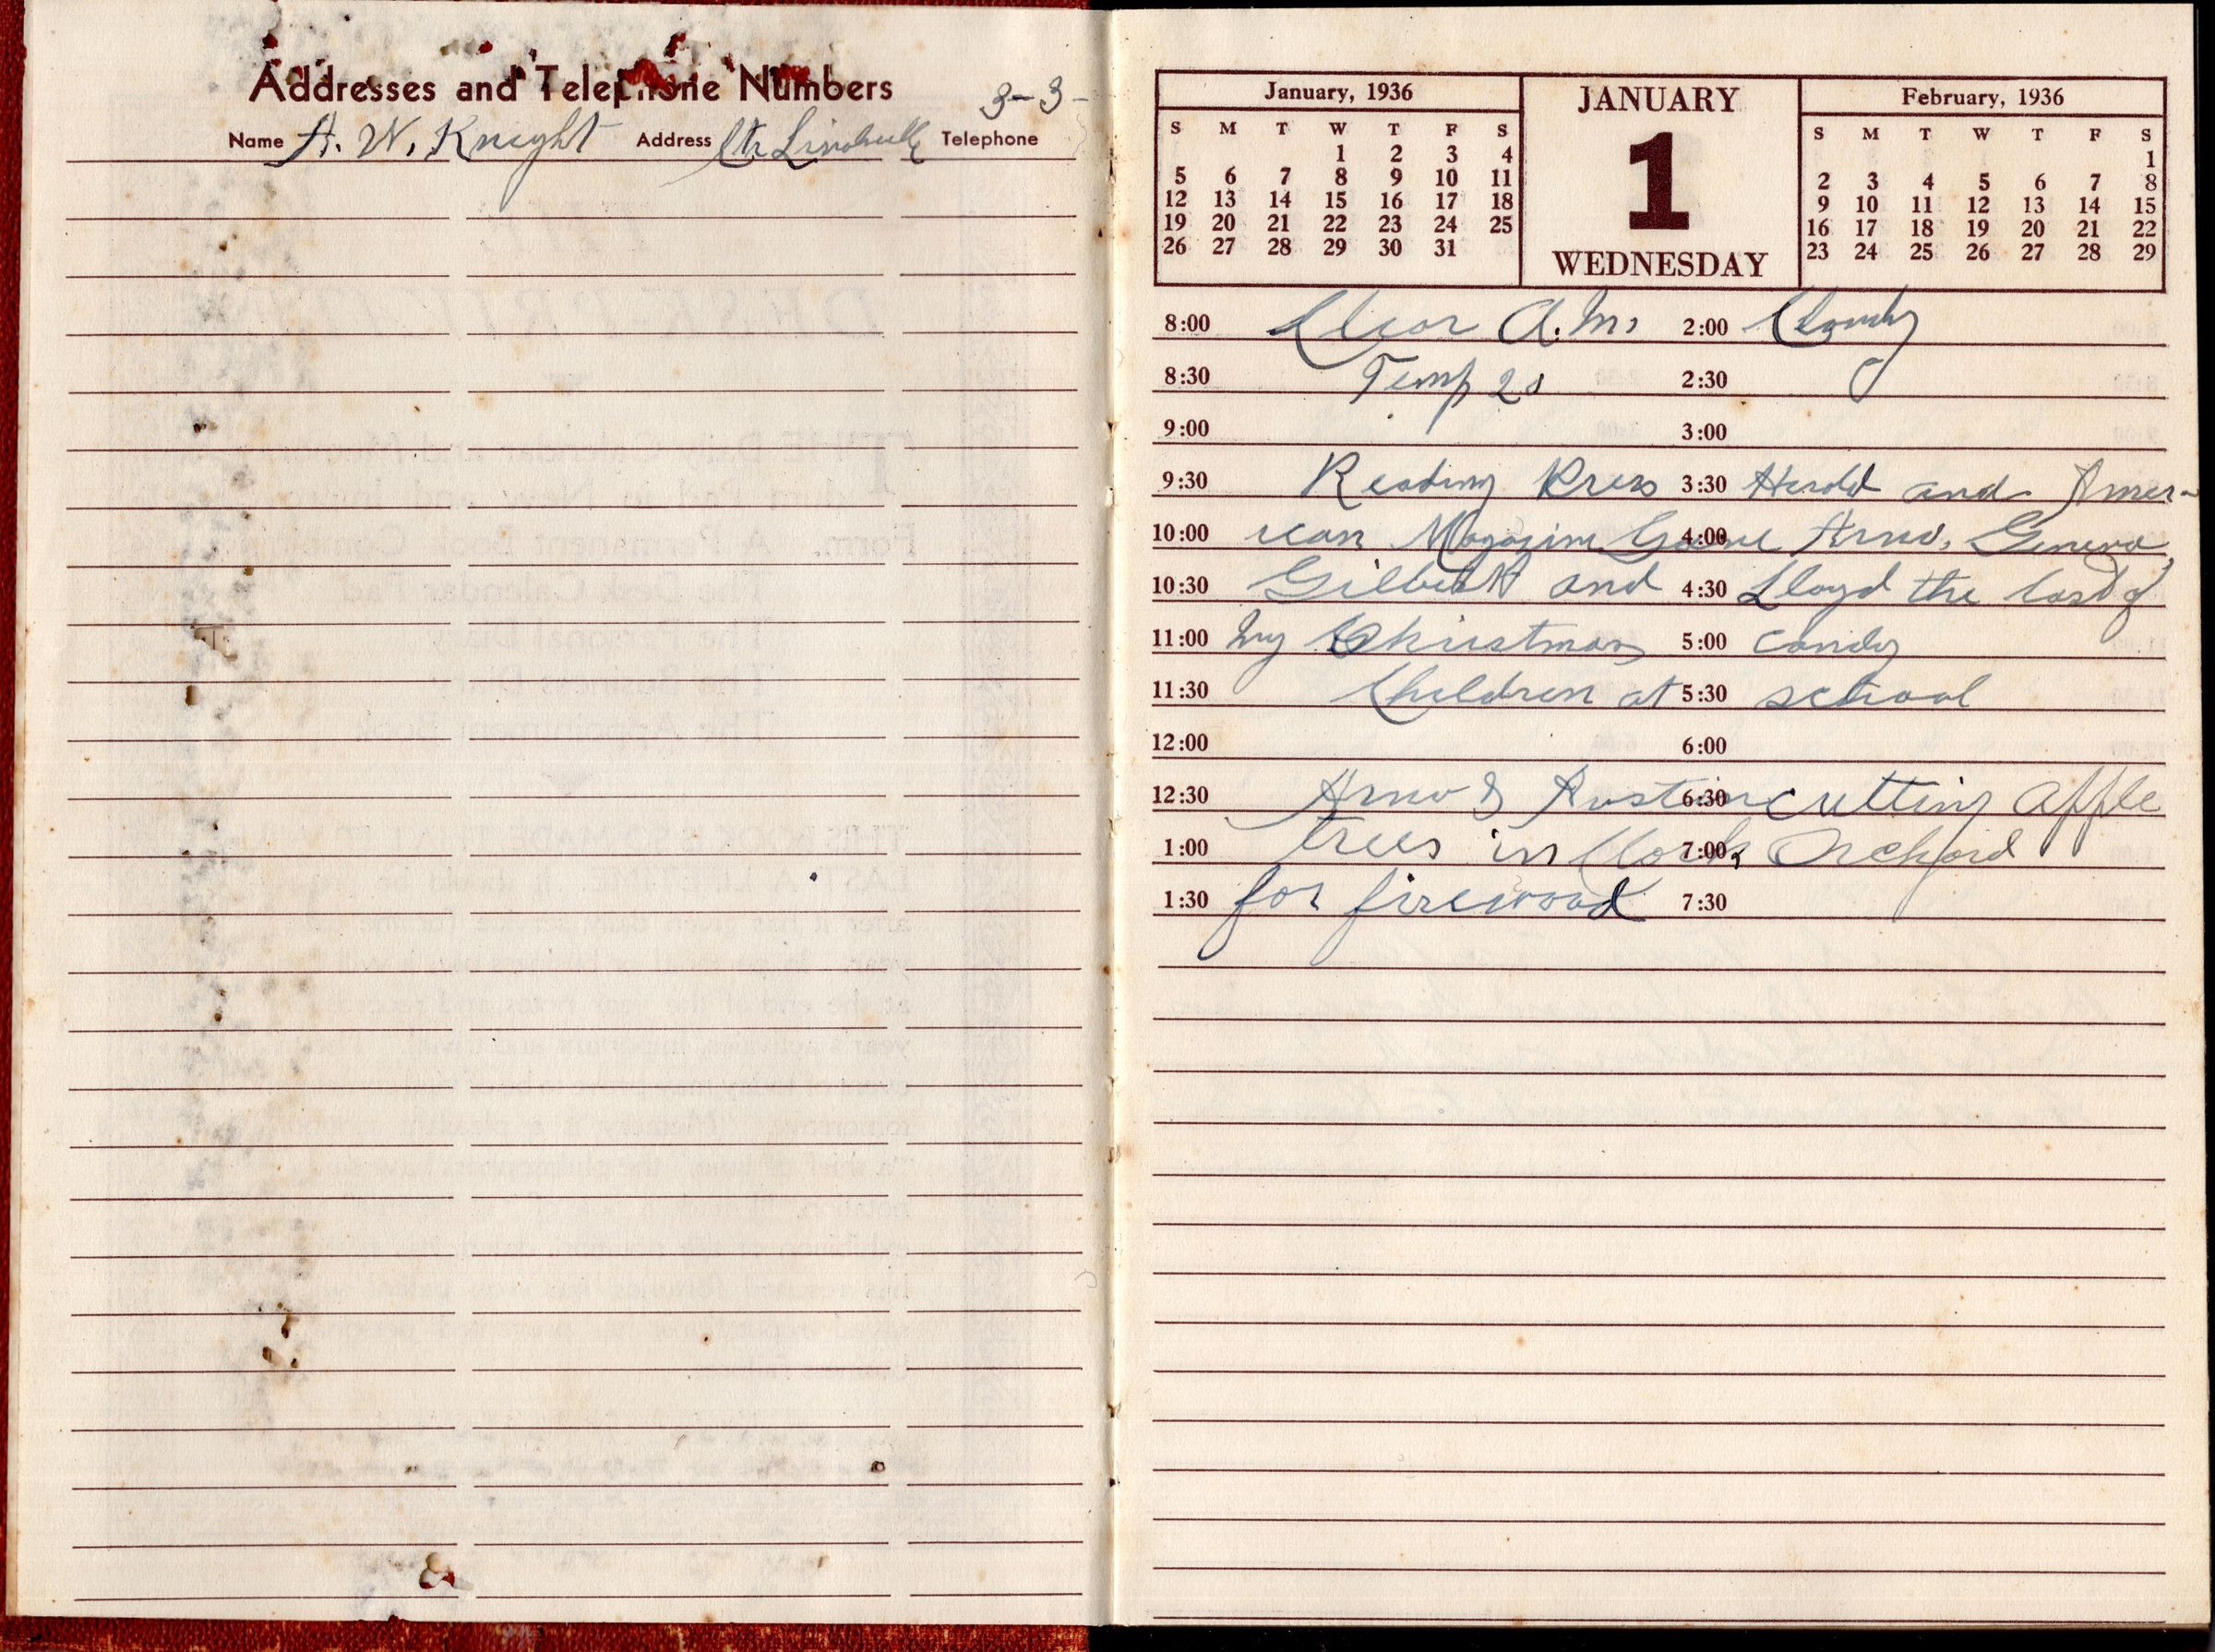 Addresses and Telephone Numbers
3-3-
Name A. W. Knight Address Ctr Lincolnville Telephone
January, 1936
S M T W T F S
1 2 3 4
5 6 7 8 9 10 11
12 13 14 15 16 17 18
19 20 21 22 23 24 25
26 27 28 29 30 31
JANUARY
1
WEDNESDAY
February, 1936
S M T W T F S
1
2 3 4 5 6 7 8
9 10 11 12 13 14 15
16 17 18 19 20 21 22
23 24 25 26 27 28 29
8:00 Clear A.M. 2:00 Cloudy
8:30 Temp 20 2:30
9:00 3:00
9:30 Reading Press 3:30 Herold and Amer-
10:00 ican Magazine Gave 4:00 Arno, Geneva,
10:30 Gilbert and 4:30 Lloyd the last of
11:00 my Christmas 5:00 candy
11:30 Children at 5:30 school
12:00 6:00
12:30 Arno & Austin 6:30 cutting apple
1:00 trees in 7:00 Orchard
1:30 for firewood 7:30